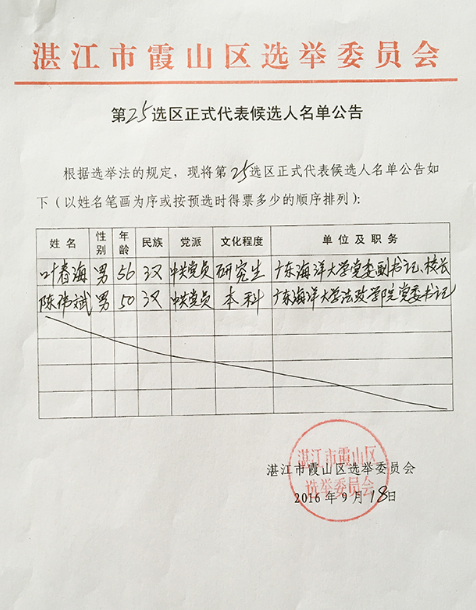 湛江市霞山区选举委员会
第25选区正式代表候选人名单公告
根据选举法的规定，现将第25选区正式代表候选人名单公告如
下（以姓名笔画为序或按预选时得票多少的顺序排列）：
姓名 性别 年龄 民族 党派 文化程度 单位及职务
叶春海 男 56 汉 中共党员 研究生 广东海洋大学党委副书记、校长
陈伟斌 男 50 汉 中共党员 本科 广东海洋大学法政学院党委书记
湛江市霞山区选举委员会
2016年9月18日
湛江市霞山区
选举委员会